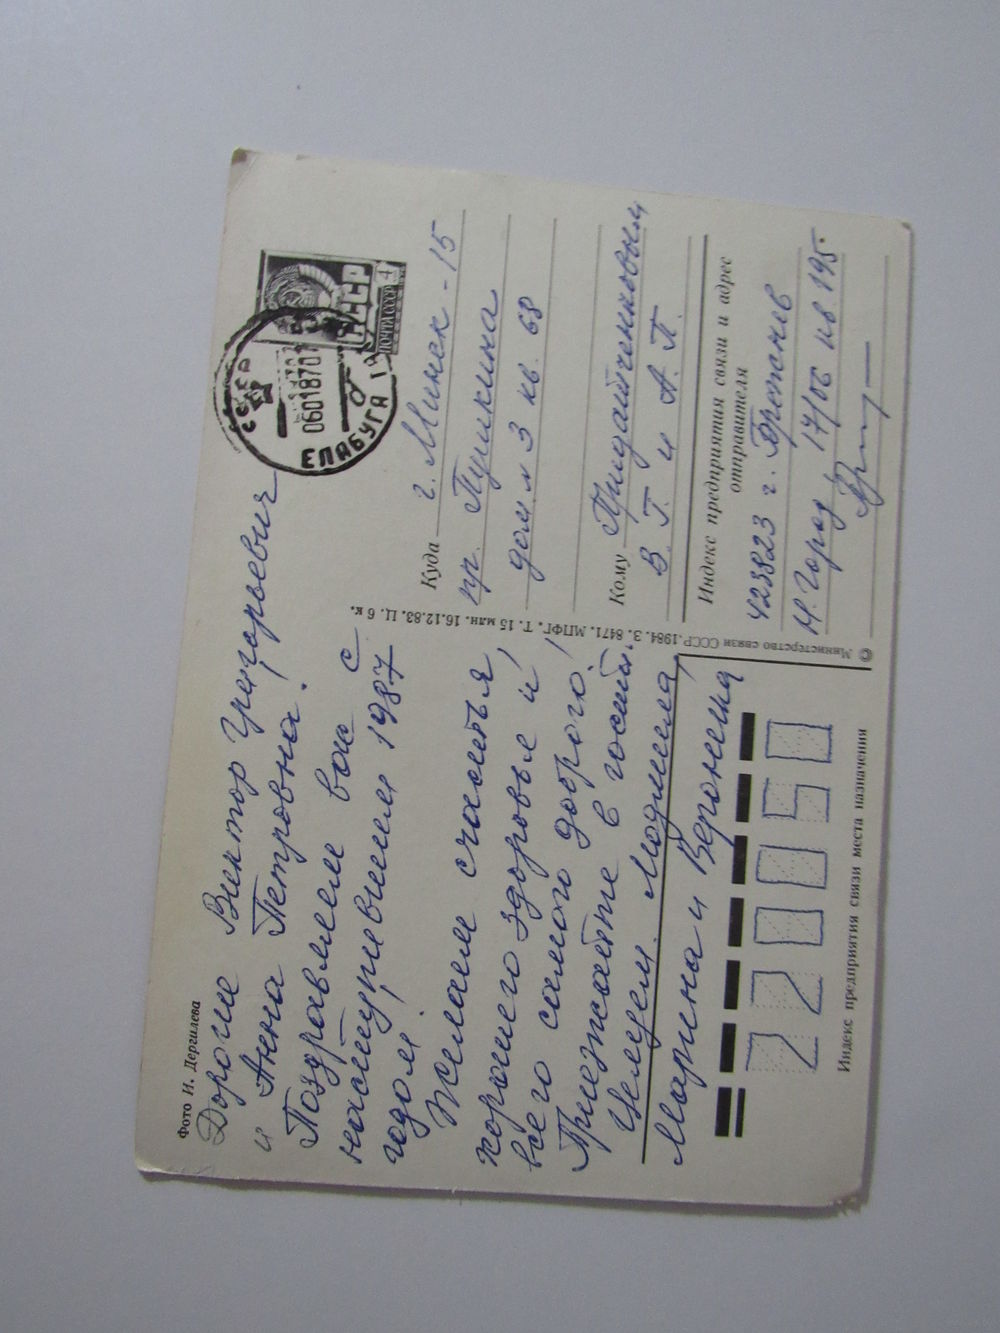 Фото И. Дергилева
Дорогие Виктор Григорьевич
и Анна Петровна!
Поздравляем вас с
наступившим 1987
годом!
Желаем счастья,
хорошего здоровья и
всего самого доброго!
Приезжайте в гости.
Целуем. Людмила,
Марина и Вероника
220050
Индекс предприятия связи места назначения
© Министерство связи СССР. 1984. З. 8471. МПФГ. Т. 15 млн. 16.12.83. Ц. 6 к.
СССР
ПОЧТА СССР 4
СССР
060187
ЕЛАБУГА
Куда г. Минск - 15
пр. Пушкина
дом 3 кв. 68
Кому Придайченковым
В. Г. и А. П.
Индекс предприятия связи и адрес
отправителя
423823 г. Брежнев
Н. Город 17/06 кв. 195.